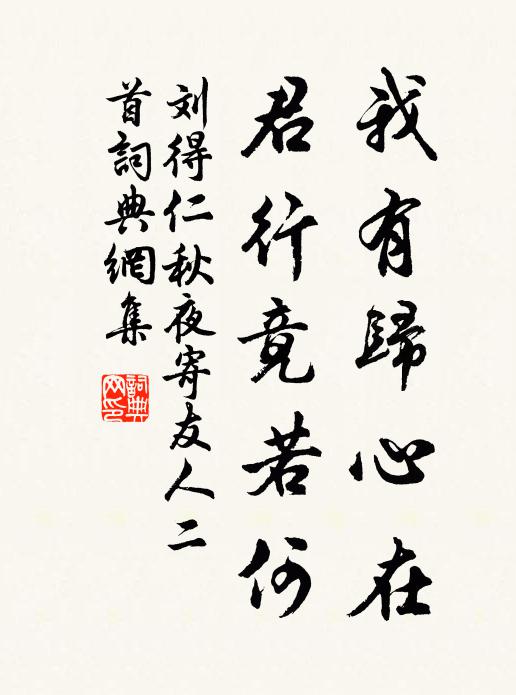 我有歸心在
君行竟若何
刘得仁秋夜寄友人二
首詞典網集
詞典
网印